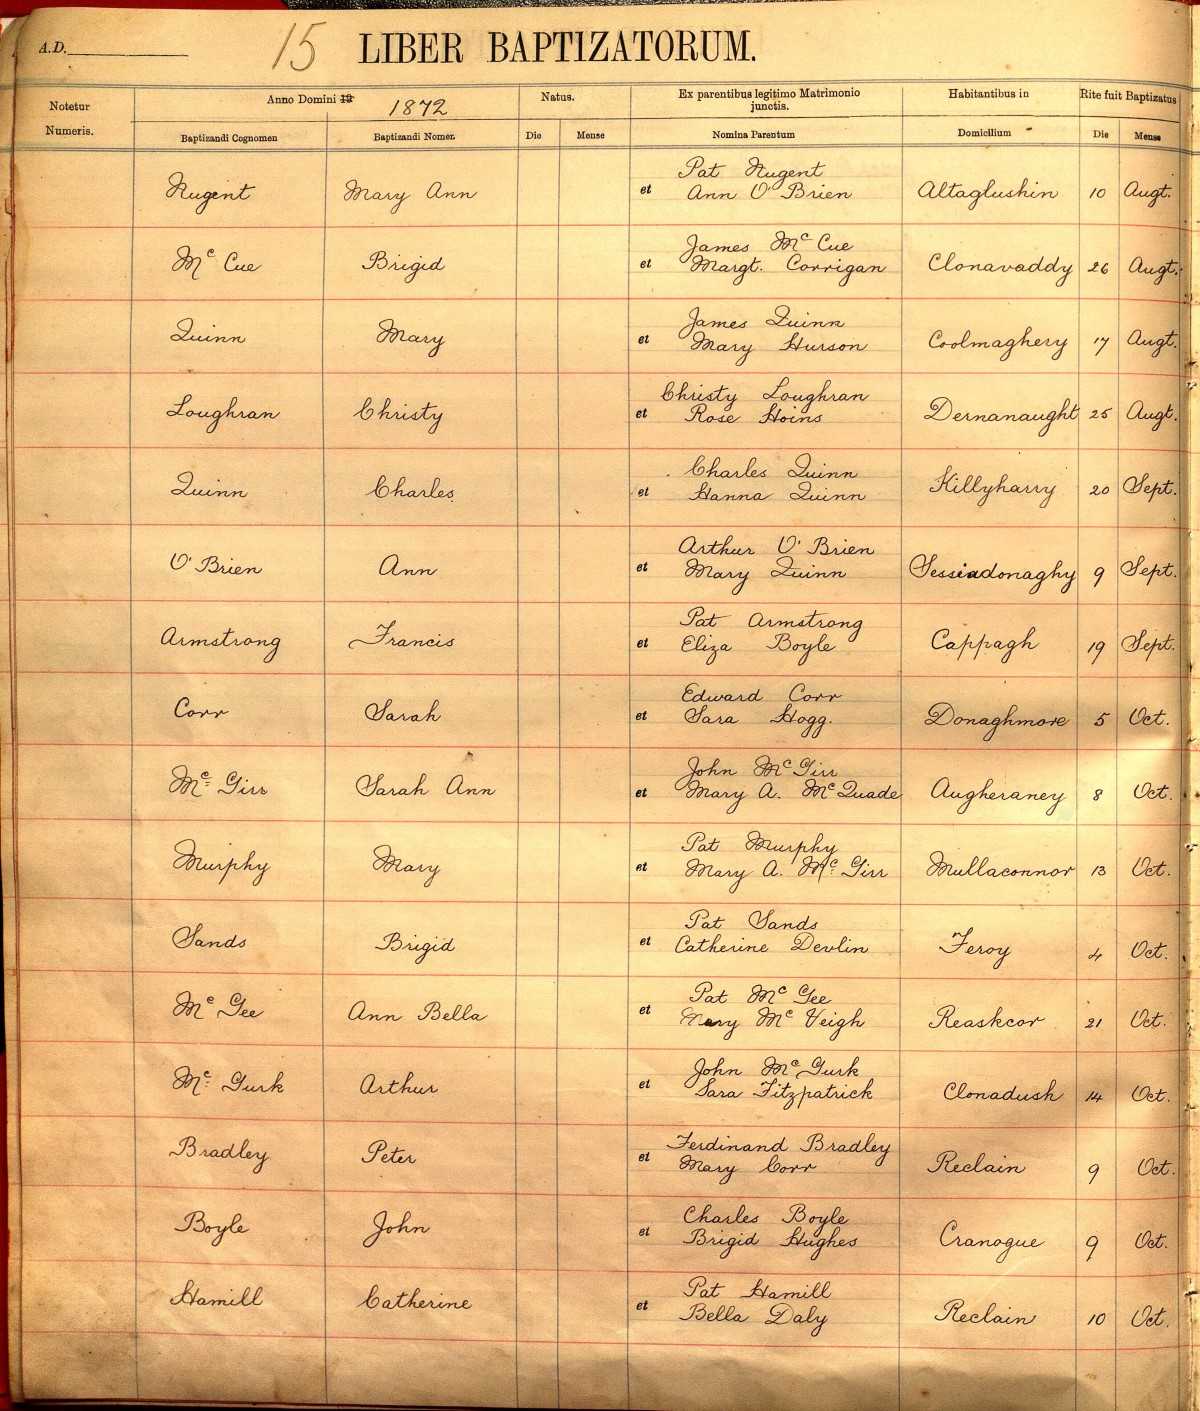 A.D.
15 LIBER BAPTIZATORUM.
Notetur Numeris.
Anno Domini 18 1872
Natus.
Ex parentibus legitimo Matrimonio junctis.
Habitantibus in
Rite fuit Baptizatus
Baptizandi Cognomen Baptizandi Nomen. Die Mense Nomina Parentum Domicilium Die Mense
Pat Nugent
Nugent Mary Ann et Ann O'Brien Altaglushin 10 Augt.
James Mc Cue
Mc Cue Brigid et Margt. Corrigan Clonavaddy 26 Augt.
James Quinn
Quinn Mary et Mary Hurson Coolmaghery 17 Augt.
Christy Loughran
Loughran Christy et Rose Hoins Dernanaught 25 Augt.
Charles Quinn
Quinn Charles et Hanna Quinn Killyharry 20 Sept.
Arthur O'Brien
O'Brien Ann et Mary Quinn Sessiadonaghy 9 Sept.
Pat Armstrong
Armstrong Francis et Eliza Boyle Cappagh 19 Sept.
Edward Corr
Corr Sarah et Sara Hogg. Donaghmore 5 Oct.
John Mc Girr
Mc Girr Sarah Ann et Mary A. Mc Quade Augheraney 8 Oct.
Pat Murphy
Murphy Mary et Mary A. Mc Girr Mullaconnor 13 Oct.
Pat Sands
Sands Brigid et Catherine Devlin Feroy 4 Oct.
Pat Mc Gee
Mc Gee Ann Bella et Mary Mc Veigh Reaskcor 21 Oct.
John Mc Gurk
Mc Gurk Arthur et Sara Fitzpatrick Clonadush 14 Oct.
Ferdinand Bradley
Bradley Peter et Mary Corr Reclain 9 Oct.
Charles Boyle
Boyle John et Brigid Hughes Cranogue 9 Oct.
Pat Hamill
Hamill Catherine et Bella Daly Reclain 10 Oct.